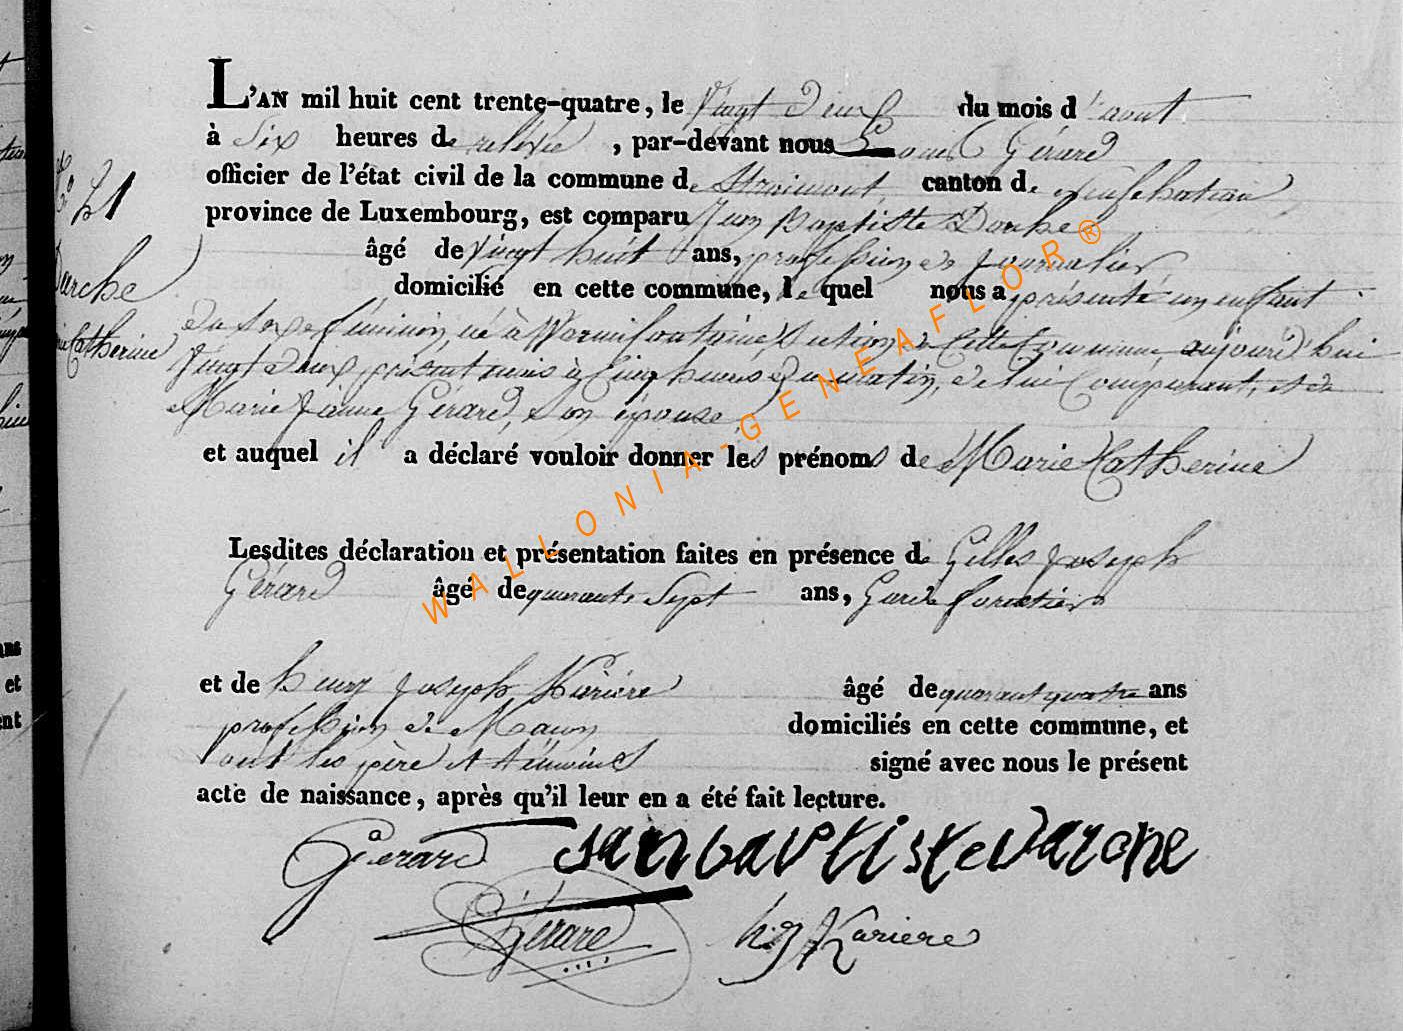 L'AN mil huit cent trente-quatre, le Vingt Deux du mois d'aout
à Six heures de relevée, par-devant nous Louis Gérard
officier de l'état civil de la commune de Straimont, canton de neufchateau
province de Luxembourg, est comparu Jean Baptiste Darche
âgé de Vingt huit ans, profession de journalier
domicilié en cette commune, lequel nous a présenté un enfant
du sexe féminin, né à Warmifontaine Section de Cette Commune aujourd'hui
Vingt deux présent mois à Cinq heures du matin, de lui Comparant, et de
Marie Jeanne Gérard, son épouse
et auquel il a déclaré vouloir donner les prénoms de Marie Catherine
Lesdites déclaration et présentation faites en présence de Gilles Joseph
Gérard âgé de quarante Sept ans, Garde forestier
et de henry Joseph Karière âgé de quarant quatre ans
profession de Maçon domiciliés en cette commune, et
ont les père et témoins signé avec nous le présent
acte de naissance, après qu'il leur en a été fait lecture.
Gerard Jean baptiste Darche
Gérard h j Kariere
71
Darche
Catherine
WALLONIA-GENEAFLOR®